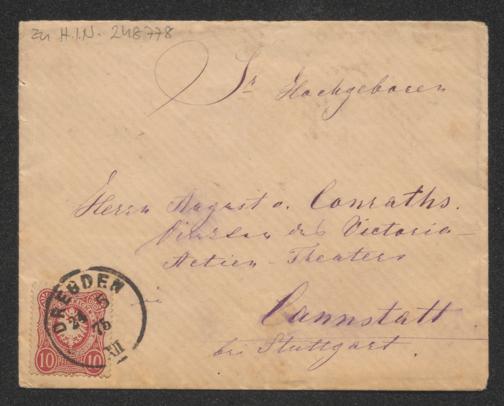 zu H.I.N. 248778
Sr Hochgeboren
Herrn August v. Conraths.
des Victoria-
Actien-Theaters
in
Cannstatt.
bei Stuttgart.
DRESDEN
5
75
XII
10 10